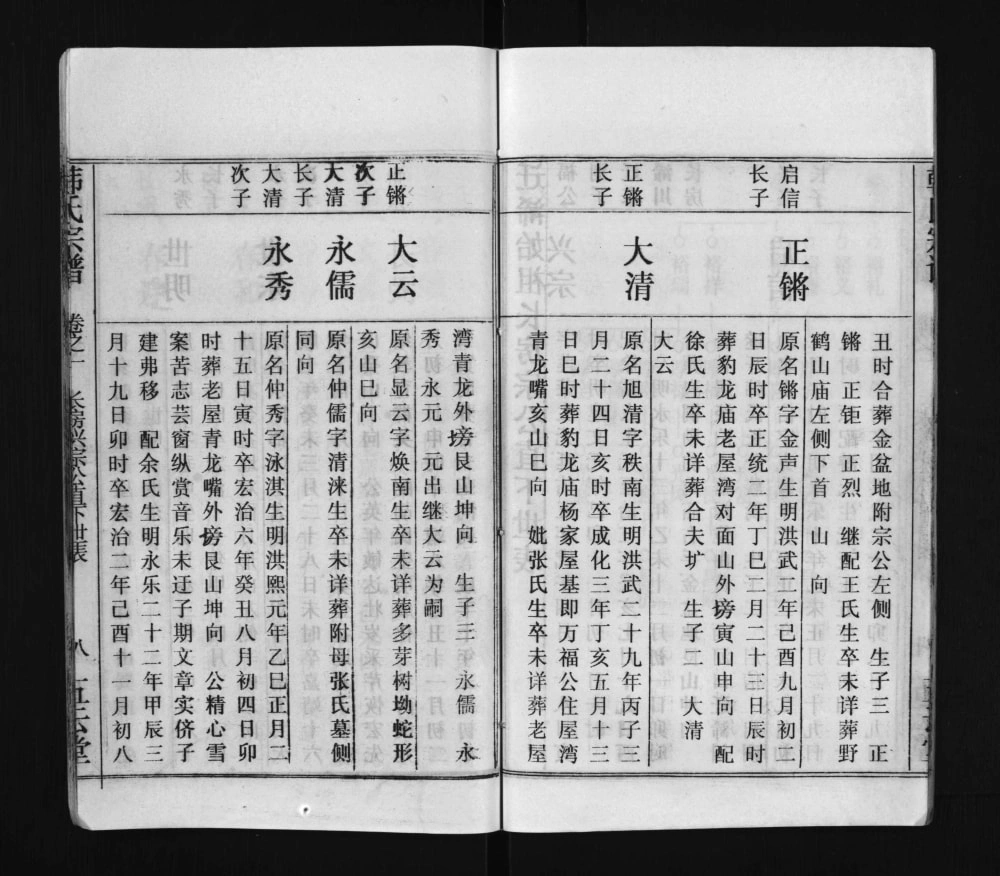 丑时合葬金盆地附宗公左侧　生子三　正
锵　正钜　正烈　继配王氏生卒未详葬野
鹤山庙左侧下首　山　向
启信
长子
正锵
原名锵字金声生明洪武二年己酉九月初二
日辰时卒正统二年丁巳二月二十三日辰时
葬豹龙庙老屋湾对面山外塝寅山申向　配
徐氏生卒未详葬合夫圹　生子二　大清
大云
正锵
长子
大清
原名旭清字秩南生明洪武二十九年丙子三
月二十四日亥时卒成化三年丁亥五月十三
日巳时葬豹龙庙杨家屋基即万福公住屋湾
青龙嘴亥山巳向　妣张氏生卒未详葬老屋
湾青龙外塝艮山坤向　生子三　永儒　永
秀　永元　元出继大云为嗣
正锵
次子
大云
原名显云字焕南生卒未详葬多芽树坳蛇形
亥山巳向
大清
长子
永儒
原名仲儒字清涞生卒未详葬附母张氏墓侧
同向
大清
次子
永秀
原名仲秀字泳淇生明洪熙元年乙巳正月二
十五日寅时卒宏治六年癸丑八月初四日卯
时葬老屋青龙嘴外塝艮山坤向　公精心雪
案苦志芸窗纵赏音乐未迂子期文章实侪子
建弗移　配余氏生明永乐二十二年甲辰三
月十九日卯时卒宏治二年己酉十一月初八
韩氏宗谱
卷之一
长房兴宗公直下世表
八